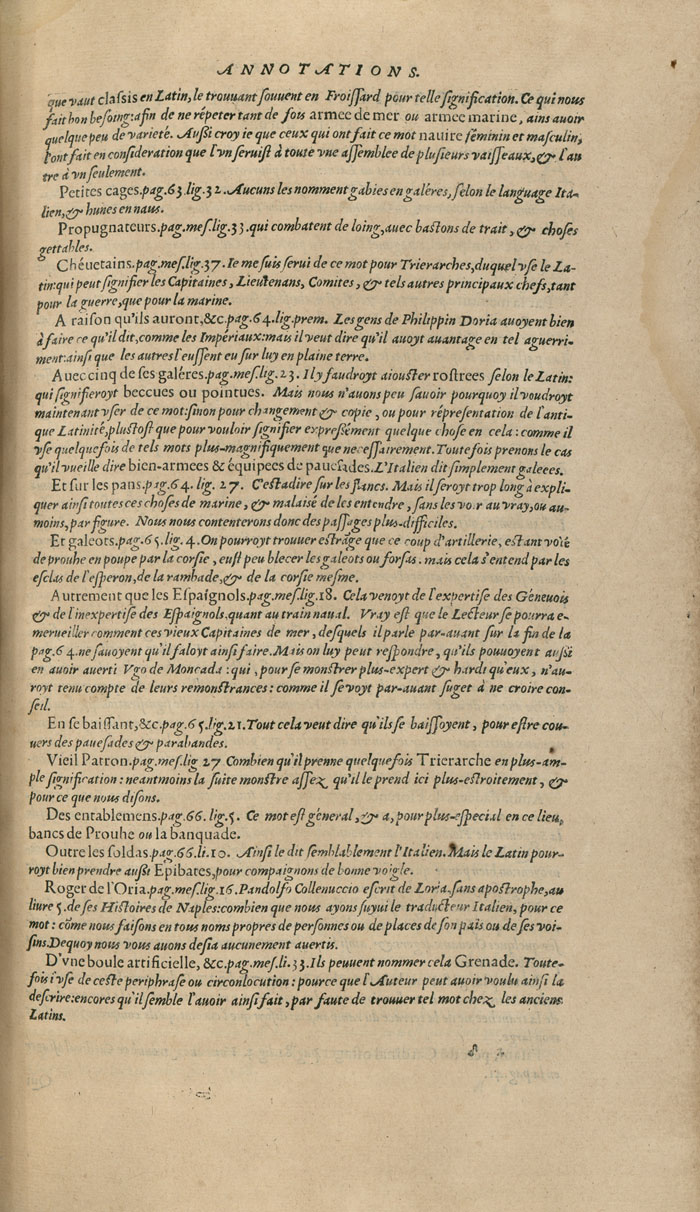 ANNOTATIONS.
que vaut classis en Latin, le trouuant souuent en Froissard pour telle signification. Ce qui nous
fait bon besoing: afin de ne répeter tant de fois armee de mer ou armee marine, ains auoir
quelque peu de varieté. Außi croy ie que ceux qui ont fait ce mot nauire féminin et masculin,
l'ont fait en consideration que l'vn seruist à toute vne assemblee de plusieurs vaisseaux, & l'au
tre à vn seulement.
Petites cages. pag. 63. lig. 32. Aucuns les nomment gabies en galéres, selon le language Ita-
lien, & hunes en naus.
Propugnateurs. pag. mes. lig. 33. qui combatent de loing, auec bastons de trait, & choses
gettables.
Chéuetains. pag. mes. lig. 37. Ie me suis serui de ce mot pour Trierarches, duquel vse le La-
tin: qui peut signifier les Capitaines, Lieutenans, Comites, & tels autres principaux chefs, tant
pour la guerre, que pour la marine.
A raison qu'ils auront, &c. pag. 64. lig. prem. Les gens de Philippin Doria auoyent bien
à faire ce qu'il dit, comme les Impériaux: mais il veut dire qu'il auoyt auantage en tel aguerri-
ment: ainsi que les autres l'eussent eu sur luy en plaine terre.
Auec cinq de ses galéres. pag. mes. lig. 23. Il y faudroyt aiouster rostrees selon le Latin:
qui signifieroyt beccues ou pointues. Mais nous n'auons peu sauoir pourquoy il voudroyt
maintenant vser de ce mot: sinon pour changement & copie, ou pour réprésentation de l'anti-
que Latinité, plustost que pour vouloir signifier expressément quelque chose en cela: comme il
vse quelquefois de tels mots plus-magnifiquement que necessairement. Toutefois prenons le cas
qu'il vueille dire bien-armees & équipees de pauesades. L'Italien dit simplement galeees.
Et sur les pans. pag. 64. lig. 27. C'estadire sur les flancs. Mais il seroyt trop long à expli-
quer ainsi toutes ces choses de marine, & malaisé de les entendre, sans les voir au vray, ou au-
moins, par figure. Nous nous contenterons donc des passages plus-difficiles.
Et galeots. pag. 65. lig. 4. On pourroyt trouuer estrãge que ce coup d'artillerie, estant volé
de prouhe en poupe par la corsie, eust peu blecer les galeots ou forsas. mais cela s'entend par les
esclas de l'esperon, de la rambade, & de la corsie mesme.
Autrement que les Espaignols. pag. mes. lig. 18. Cela venoyt de l'expertise des Géneuois
& de l'inexpertise des Espaignols, quant au train naual. Vray est que le Lecteur se pourra e-
merueiller comment ces vieux Capitaines de mer, desquels il parle par-auant sur la fin de la
pag. 64. ne sauoyent qu'il faloyt ainsi faire. Mais on luy peut respondre, qu'ils pouuoyent außi
en auoir auerti Vgo de Moncada: qui, pour se monstrer plus-expert & hardi qu'eux, n'au-
royt tenu compte de leurs remonstrances: comme il se voyt par-auant suget à ne croire con-
seil.
En se baissant, &c. pag. 65. lig. 21. Tout cela veut dire qu'ils se baissoyent, pour estre cou-
uers des pauesades & parabandes.
Vieil Patron. pag. mes. lig 27 Combien qu'il prenne quelquefois Trierarche en plus-am-
ple signification: neantmoins la suite monstre assez qu'il le prend ici plus-estroitement, &
pour ce que nous disons.
Des entablemens. pag. 66. lig. 5. Ce mot est géneral, & a, pour plus-especial en ce lieu,
bancs de Prouhe ou la banquade.
Outre les soldas. pag. 66. li. 10. Ainsi le dit semblablement l'Italien. Mais le Latin pour-
royt bien prendre außi Epibates, pour compaignons de bonne voigle.
Roger de l'Oria. pag. mes. lig. 16. Pandolfo Collenuccio escrit de Loria, sans apostrophe, au
liure 5. de ses Histoires de Naples: combien que nous ayons suyui le traducteur Italien, pour ce
mot: cõme nous faisons en tous noms propres de personnes ou de places de son païs ou de ses voi-
sins. Dequoy nous vous auons desia aucunement auertis.
D'vne boule artificielle, &c. pag. mes. li. 33. Ils peuuent nommer cela Grenade. Toute-
fois i'vse de ceste periphrase ou circonlocution: pource que l'Auteur peut auoir voulu ainsi la
descrire: encores qu'il semble l'auoir ainsi fait, par faute de trouuer tel mot chez les anciens
Latins.